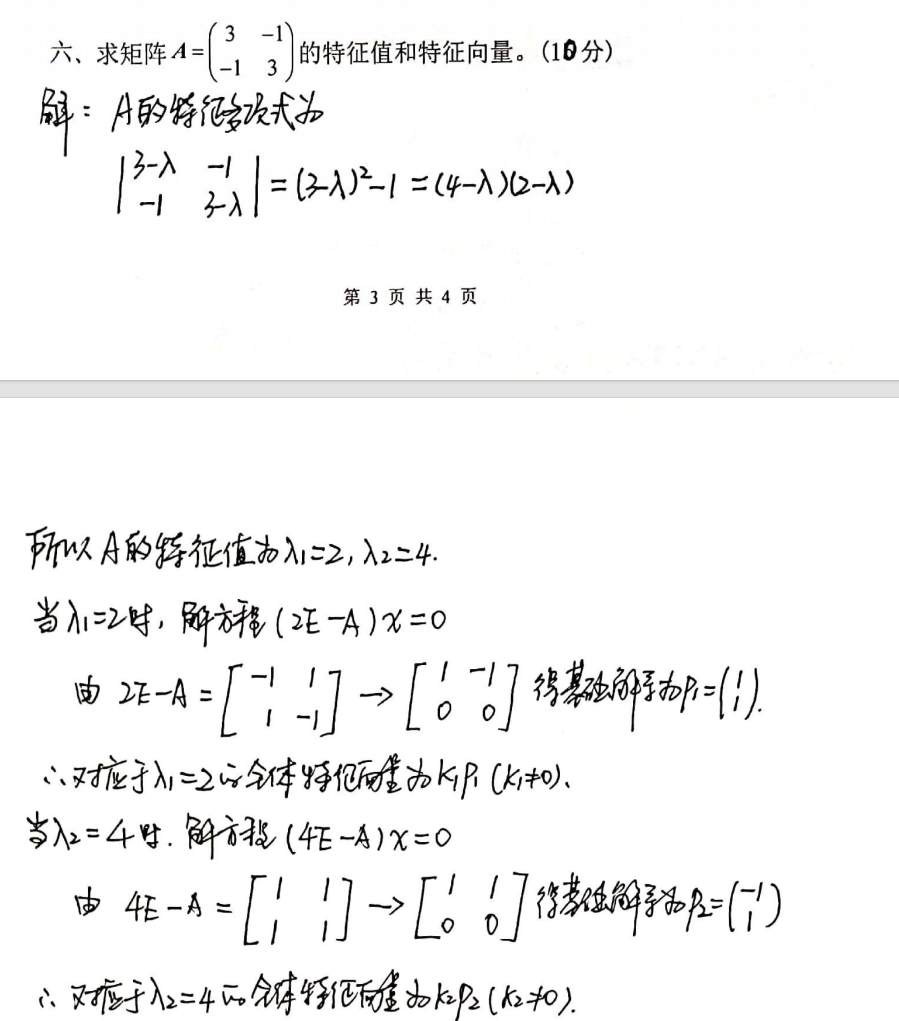 六、求矩阵 A=(3 -1; -1 3)的特征值和特征向量。(10分)
解：A的特征多项式为
|3-λ -1; -1 3-λ| = (3-λ)²-1 = (4-λ)(2-λ)
第 3 页 共 4 页
所以A的特征值为λ₁=2, λ₂=4.
当λ₁=2时, 解方程(2E-A)x=0
由 2E-A = [-1 1; 1 -1] → [1 -1; 0 0] 得基础解系为P₁=(1; 1).
∴对应于λ₁=2的全体特征向量为k₁P₁(k₁≠0).
当λ₂=4时. 解方程(4E-A)x=0
由 4E-A = [1 1; 1 1] → [1 1; 0 0] 得基础解系为P₂=(-1; 1)
∴对应于λ₂=4的全体特征向量为k₂P₂(k₂≠0).